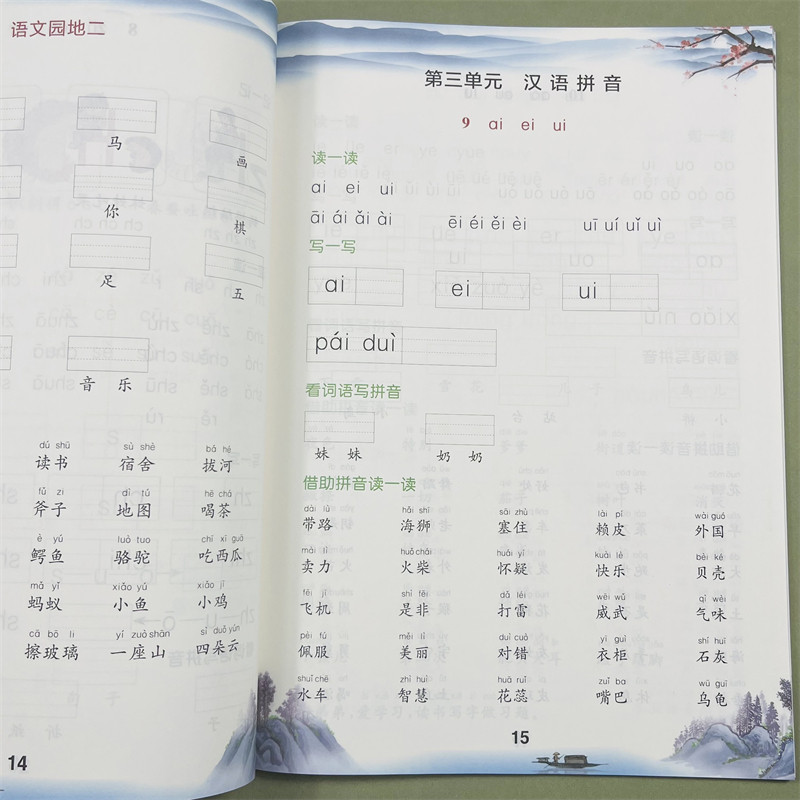 语文园地二
马
画
你
棋
足
五
音 乐
dú shū sù shè bá hé
读书 宿舍 拔河
fǔ zi dì tú hē chá
斧子 地图 喝茶
è yú luò tuo chī xī guā
鳄鱼 骆驼 吃西瓜
mǎ yǐ xiǎo yú xiǎo jī
蚂蚁 小鱼 小鸡
cā bō li yí zuò shān sì duǒ yún
擦玻璃 一座山 四朵云
14
第三单元 汉语拼音
9 ai ei ui
读一读
ai ei ui
āi ái ǎi ài ēi éi ěi èi uī uí uǐ uì
写一写
ai ei ui
pái duì
看词语写拼音
妹 妹 奶 奶
借助拼音读一读
dài lù hǎi shī sāi zhù lài pí wài guó
带路 海狮 塞住 赖皮 外国
mài lì huǒ chái huái yí kuài lè bèi ké
卖力 火柴 怀疑 快乐 贝壳
fēi jī shì fēi dǎ léi wēi wǔ qì wèi
飞机 是非 打雷 威武 气味
pèi fú měi lì duì cuò yī guì shí huī
佩服 美丽 对错 衣柜 石灰
shuǐ chē zhì huì huā ruǐ zuǐ ba wū guī
水车 智慧 花蕊 嘴巴 乌龟
15